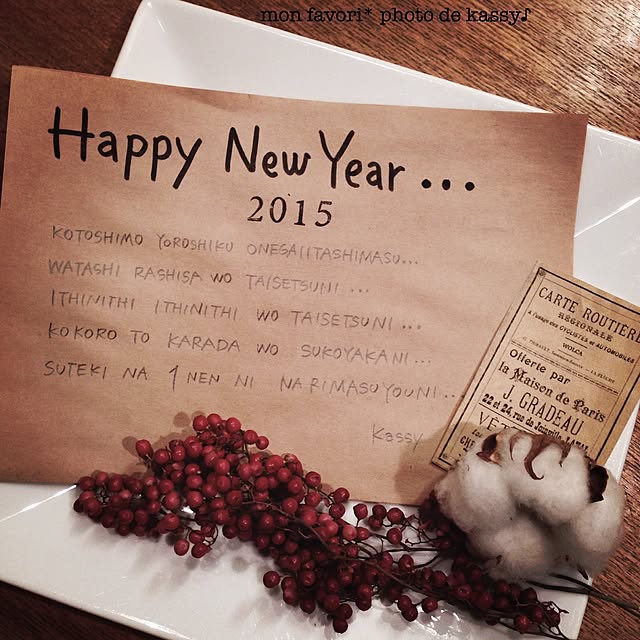 mon favori* photo de kassy♪
Happy New Year...
2015
KOTOSHIMO YOROSHIKU ONEGAIITASHIMASU...
WATASHI RASHISA WO TAISETSUNI...
ITHINITHI ITHINITHI WO TAISETSUNI...
KOKORO TO KARADA WO SUKOYAKANI...
SUTEKI NA 1 NEN NI NARIMASUYOUNI...
Kassy
CARTE ROUTIÈRE
RÉGIONALE
A l'usage des CYCLISTES et AUTOMOBILES
Offerte par
la Maison de Paris
J. GRADEAU
22 et 24, rue de